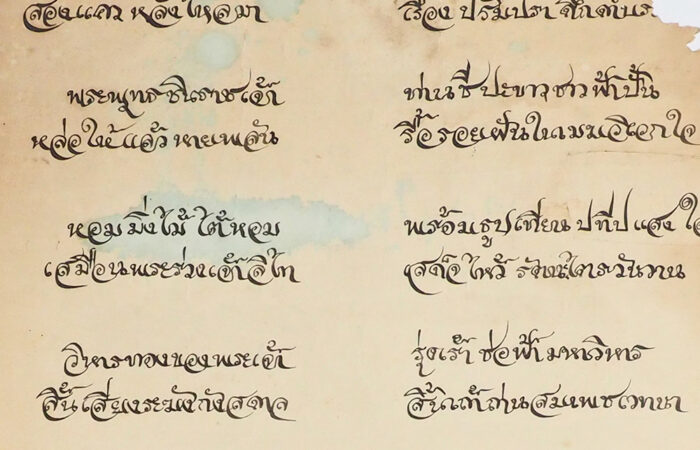 สองแคว หลั่งไหลมา เรื่อง ปรัมปรา
พระพุทธชินราชเจ้า ท่านชีปะขาวชาวฟ้าปั้น
หล่อให้แล้วหายพลัน รื้อรอยฝัน
หอมมิ่งไม้ไต้หอม พร้อมธูปเทียน ปทีป แสง
เสมือนพระร่วงเจ้าลิไท เสด็จไหว้ รัตนไตรวันวาน
วิหารทองของพระเจ้า รุ่งเร้า ช่อฟ้า มหาวิหาร
สิ้นเสียงระฆังกังสดาล